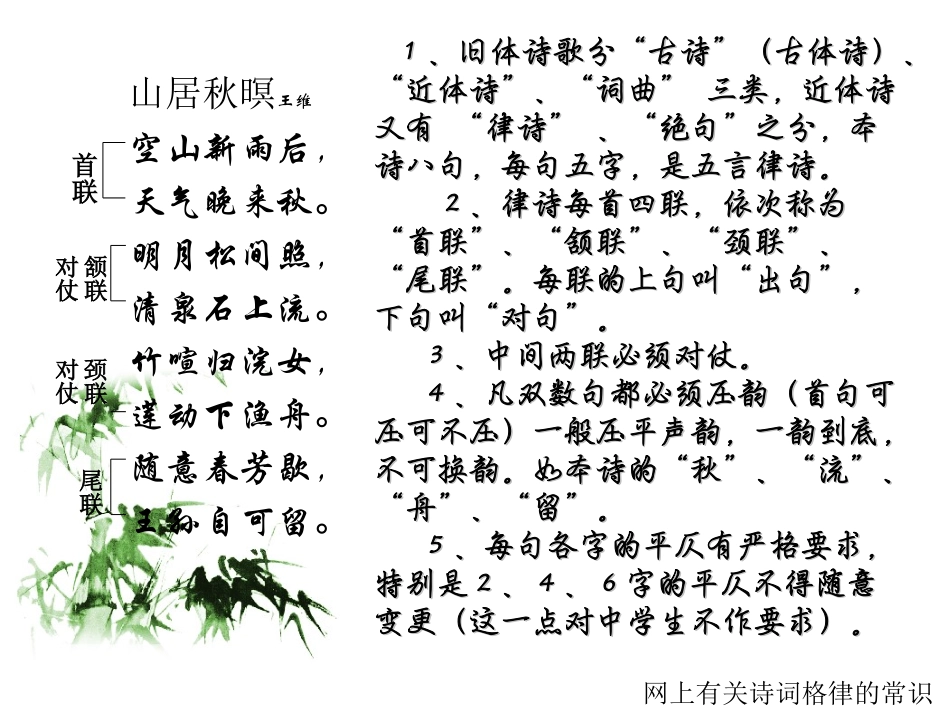 山居秋暝 王维
首联
空山新雨后，
天气晚来秋。
对仗 颔联
明月松间照，
清泉石上流。
对仗 颈联
竹喧归浣女，
莲动下渔舟。
尾联
随意春芳歇，
王孙自可留。
1、旧体诗歌分“古诗”（古体诗）、
“近体诗”、“词曲” 三类，近体诗
又有 “律诗” 、“绝句”之分，本
诗八句，每句五字，是五言律诗。
2、律诗每首四联，依次称为
“首联”、“颔联”、“颈联”、
“尾联”。每联的上句叫“出句”，
下句叫“对句”。
3、中间两联必须对仗。
4、凡双数句都必须压韵（首句可
压可不压）一般压平声韵，一韵到底，
不可换韵。如本诗的“秋”、“流”、
“舟”、“留”。
5、每句各字的平仄有严格要求，
特别是2、4、6字的平仄不得随意
变更（这一点对中学生不作要求）。
网上有关诗词格律的常识